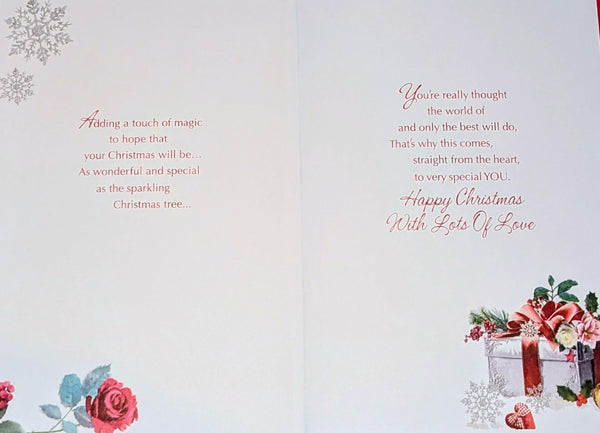 Adding a touch of magic
to hope that
your Christmas will be...
As wonderful and special
as the sparkling
Christmas tree...
You're really thought
the world of
and only the best will do,
That's why this comes,
straight from the heart,
to very special YOU.
Happy Christmas
With Lots Of Love